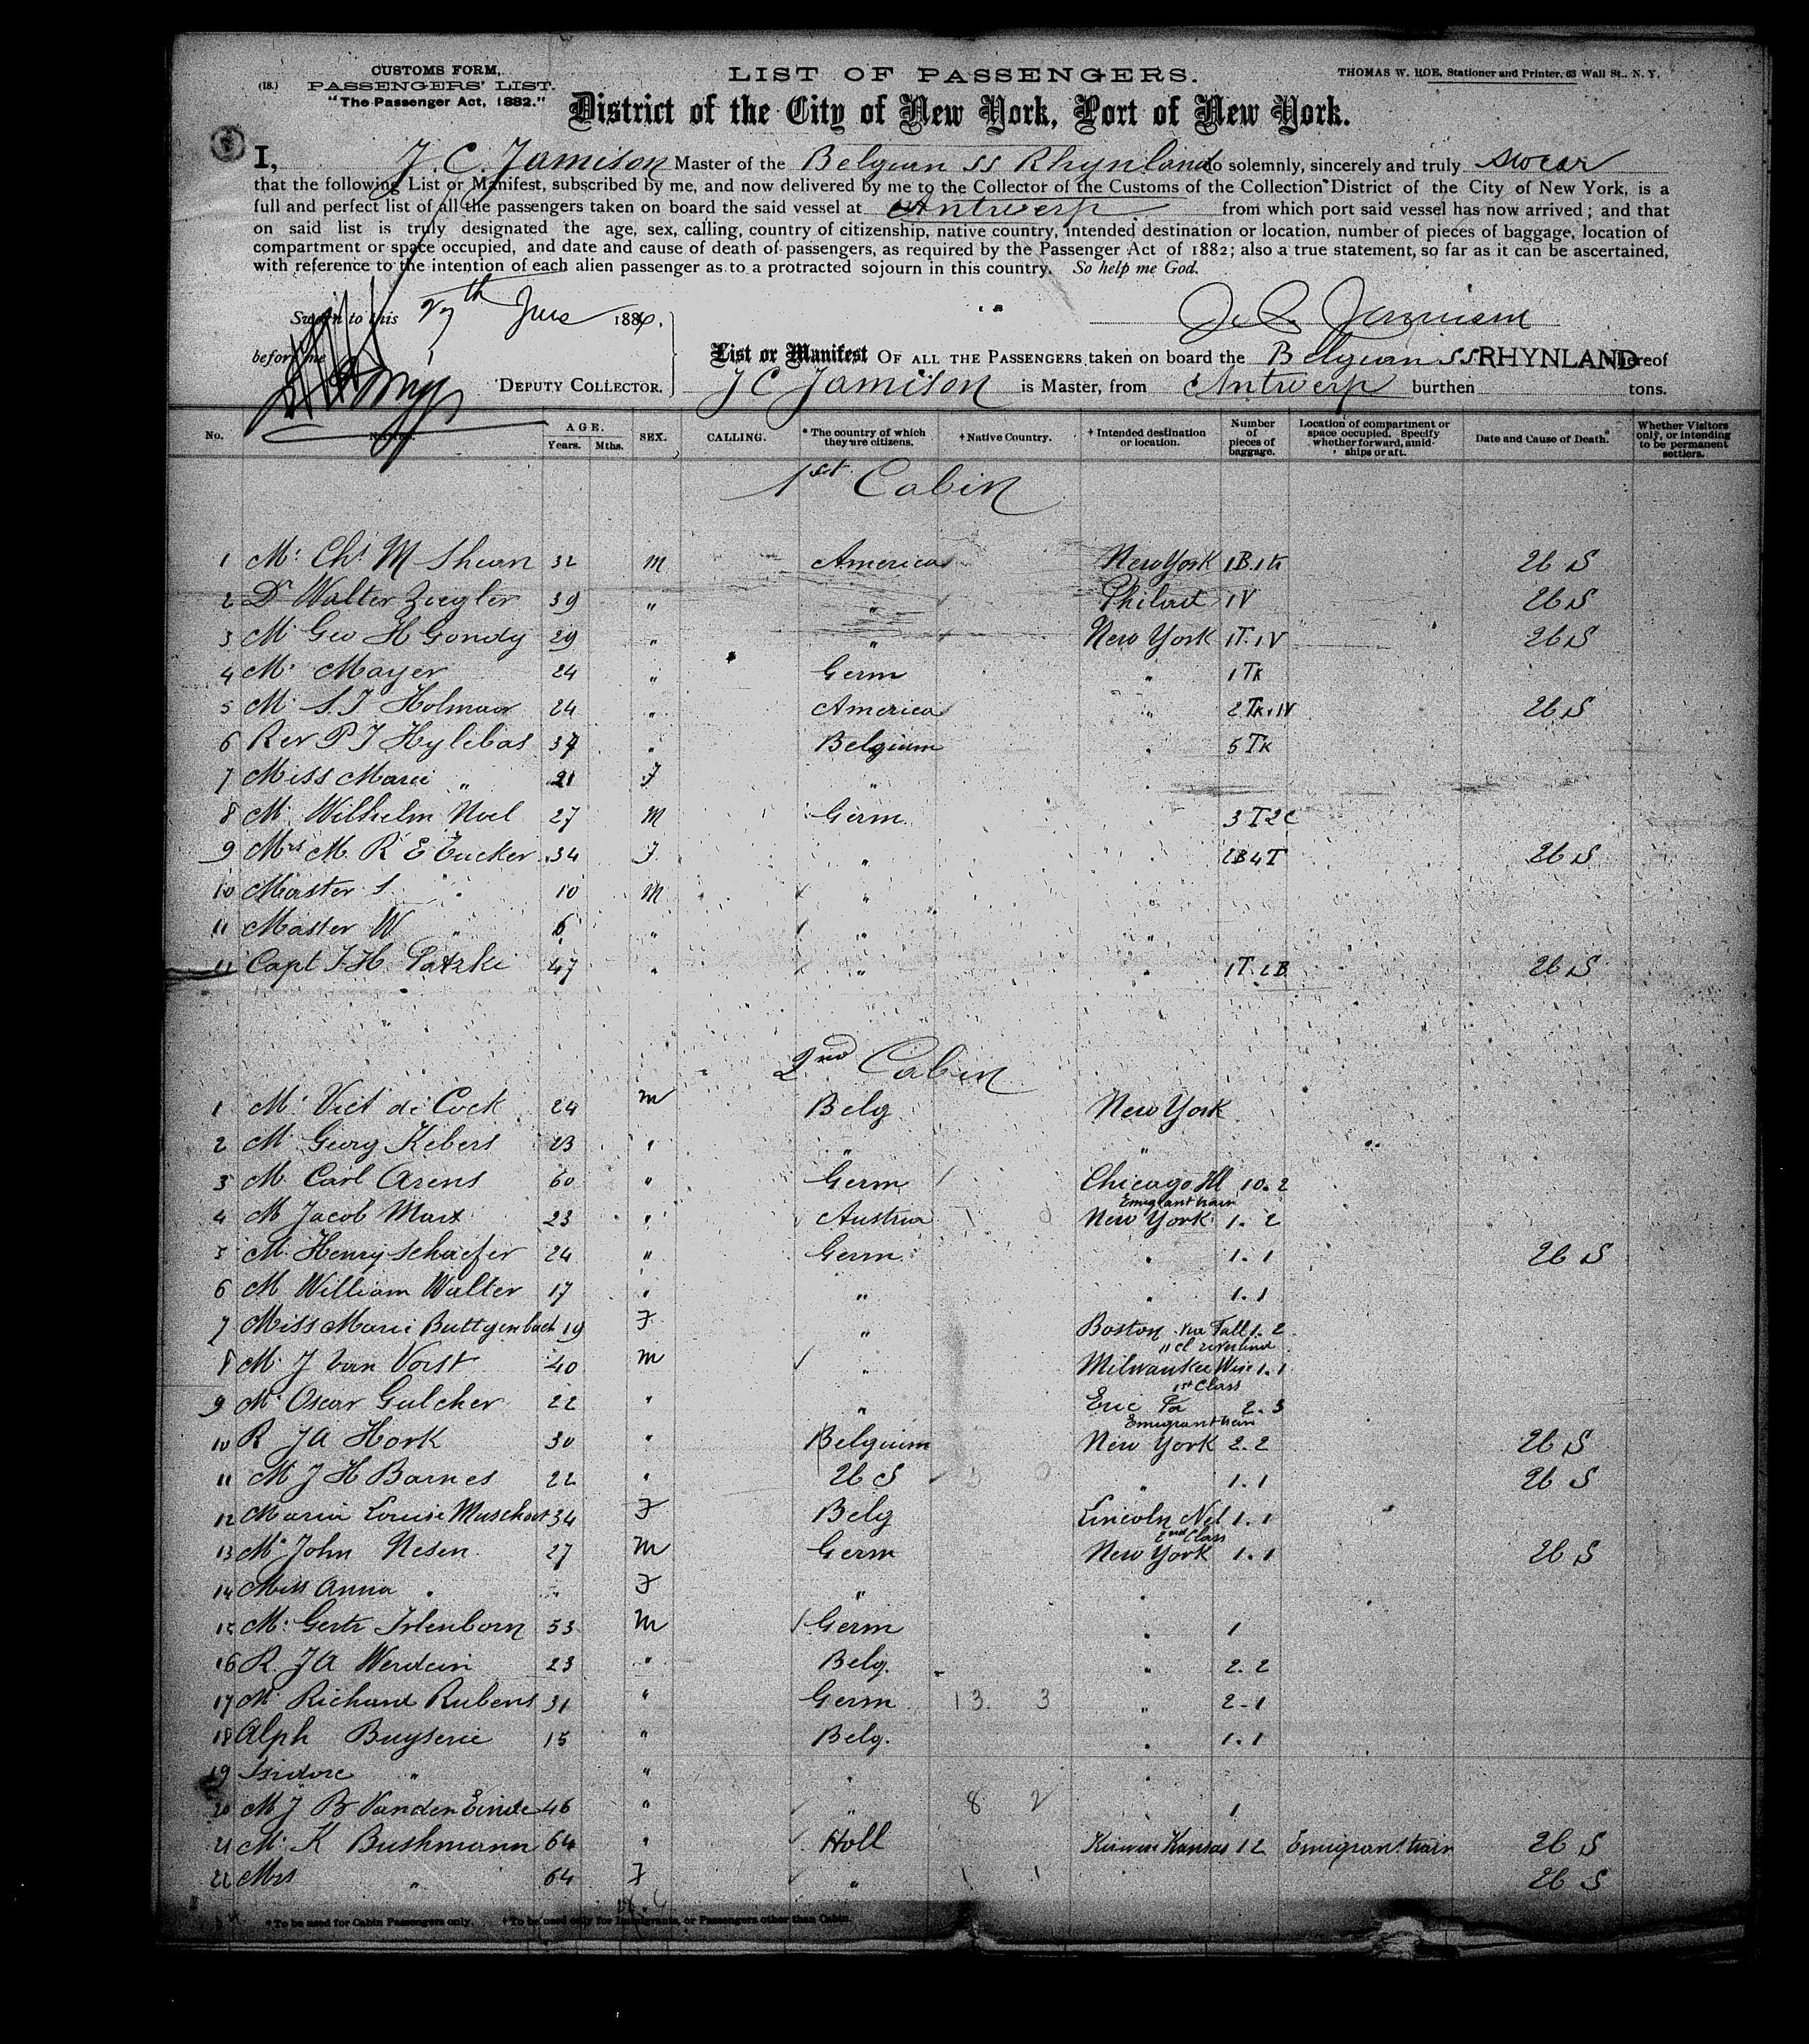 (18.)
CUSTOMS FORM,
PASSENGERS' LIST.
"The Passenger Act, 1882."
LIST OF PASSENGERS.
THOMAS W. ROE, Stationer and Printer, 63 Wall St., N. Y.
District of the City of New York, Port of New York.
I, J. C. Jamison Master of the Belgian SS Rhynland do solemnly, sincerely and truly swear
that the following List or Manifest, subscribed by me, and now delivered by me to the Collector of the Customs of the Collection District of the City of New York, is a
full and perfect list of all the passengers taken on board the said vessel at Antwerp from which port said vessel has now arrived; and that
on said list is truly designated the age, sex, calling, country of citizenship, native country, intended destination or location, number of pieces of baggage, location of
compartment or space occupied, and date and cause of death of passengers, as required by the Passenger Act of 1882; also a true statement, so far as it can be ascertained,
with reference to the intention of each alien passenger as to a protracted sojourn in this country. So help me God.
Sworn to this 27th 188
J. C. Jamison
before me
List or Manifest OF ALL THE PASSENGERS taken on board the Belgian SS RHYNLAND whereof
DEPUTY COLLECTOR. J C Jamison is Master, from Antwerp burthen tons.
No. NAMES. AGE. Years. Mths. SEX. CALLING. * The country of which they are citizens. † Native Country. † Intended destination or location. Number of pieces of baggage. Location of compartment or space occupied. Specify whether forward, amidships or aft. Date and Cause of Death. Whether Visitors only, or intending to be permanent settlers.
1st Cabin
1 Mr Chs M Shean 32 M America New York 1B. 1tk U S
2 Dr Walter Ziegler 39 " " Philad 1V U S
3 M Geo H Gondy 29 " " New York 1T. 1V U S
4 Mr Mayer 24 " Germ " 1Tk
5 M S. J Holman 24 " America " 2Tk 1V U S
6 Rev P J Hylebos 37 " Belgium " 5Tk
7 Miss Marie " 21 F "
8 M Wilhelm Noel 27 M Germ. 3T 2C
9 Mrs M. R E Tucker 34 F " " 2B 4T U S
10 Master S. " 10 M " "
11 Master W " 6 " " "
Capt J. H. Patzki 47 " " " 1T. 2B U S
2nd Cabin
1 M Vict de Cock 24 M Belg New York
2 M Georg Kebers 23 " " "
3 M Carl Arens 60 " Germ Chicago Ill 10. 2
Emigrant train
4 M Jacob Marx 23 " Austria New York 1. 2
5 M. Henry Schaefer 24 " Germ. " 1. 1 U S
6 M William Walter 17 " " " 1. 1
7 Miss Marie Buttgenbach 19 F " Boston via Fall 1. 2
8 M. J Van Vorst 40 M " Milwaukee Wisc 1. 1
1st Class
9 M Oscar Gulcher 22 " " Erie Pa 2. 3
Emigrant train
10 R JA Hork 30 " Belgium New York 2. 2 U S
11 M J H Barnes 22 " U S " 1. 1 U S
12 Maria Louise 34 F Belg Lincoln Neb 1. 1
2nd Class
13 M John Nesen 27 M Germ New York 1. 1 U S
14 Miss Anna " " F " "
15 M. Gertr Irlenborn 53 M Germ " 1
16 R. JA Werdein 23 " Belg. " 2. 2
17 M Richard Rubens 31 " Germ 13. 3 " 2-1
18 Alph Buyserie 15 " Belg. " 1. 1
19 Isidore " " " "
20 M J B Vanden Einde 46 " " 8 2 1
21 M. K Bushmann 64 " Holl Kansas 12 Emigrant train U S
22 Mrs " 64 F " 1 1 U S
* To be used for Cabin Passengers only. † To be used only for Immigrants, or Passengers other than Cabin.